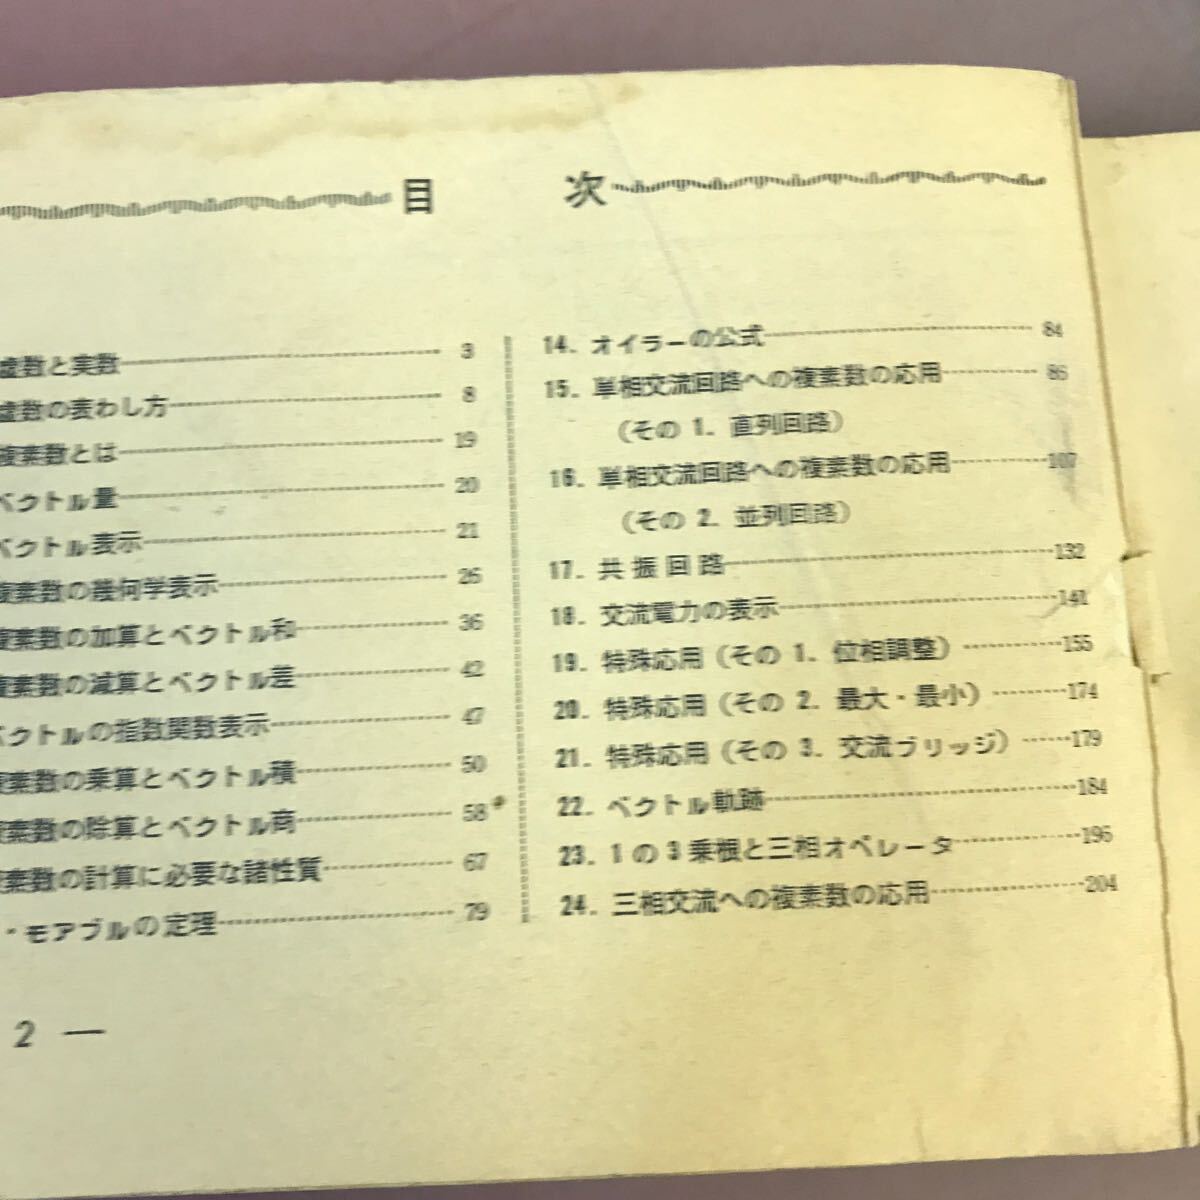 目 次
虚数と実数 3
虚数の表わし方 8
複素数とは 19
ベクトル量 20
ベクトル表示 21
複素数の幾何学表示 26
複素数の加算とベクトル和 36
複素数の減算とベクトル差 42
ベクトルの指数関数表示 47
複素数の乗算とベクトル積 50
複素数の除算とベクトル商 58
複素数の計算に必要な諸性質 67
・モアブルの定理 79
14. オイラーの公式 84
15. 単相交流回路への複素数の応用 86
(その 1. 直列回路)
16. 単相交流回路への複素数の応用 107
(その 2. 並列回路)
17. 共振回路 132
18. 交流電力の表示 141
19. 特殊応用(その 1. 位相調整) 155
20. 特殊応用(その 2. 最大・最小) 174
21. 特殊応用(その 3. 交流ブリッジ) 179
22. ベクトル軌跡 184
23. 1の3乗根と三相オペレータ 196
24. 三相交流への複素数の応用 204
2 —